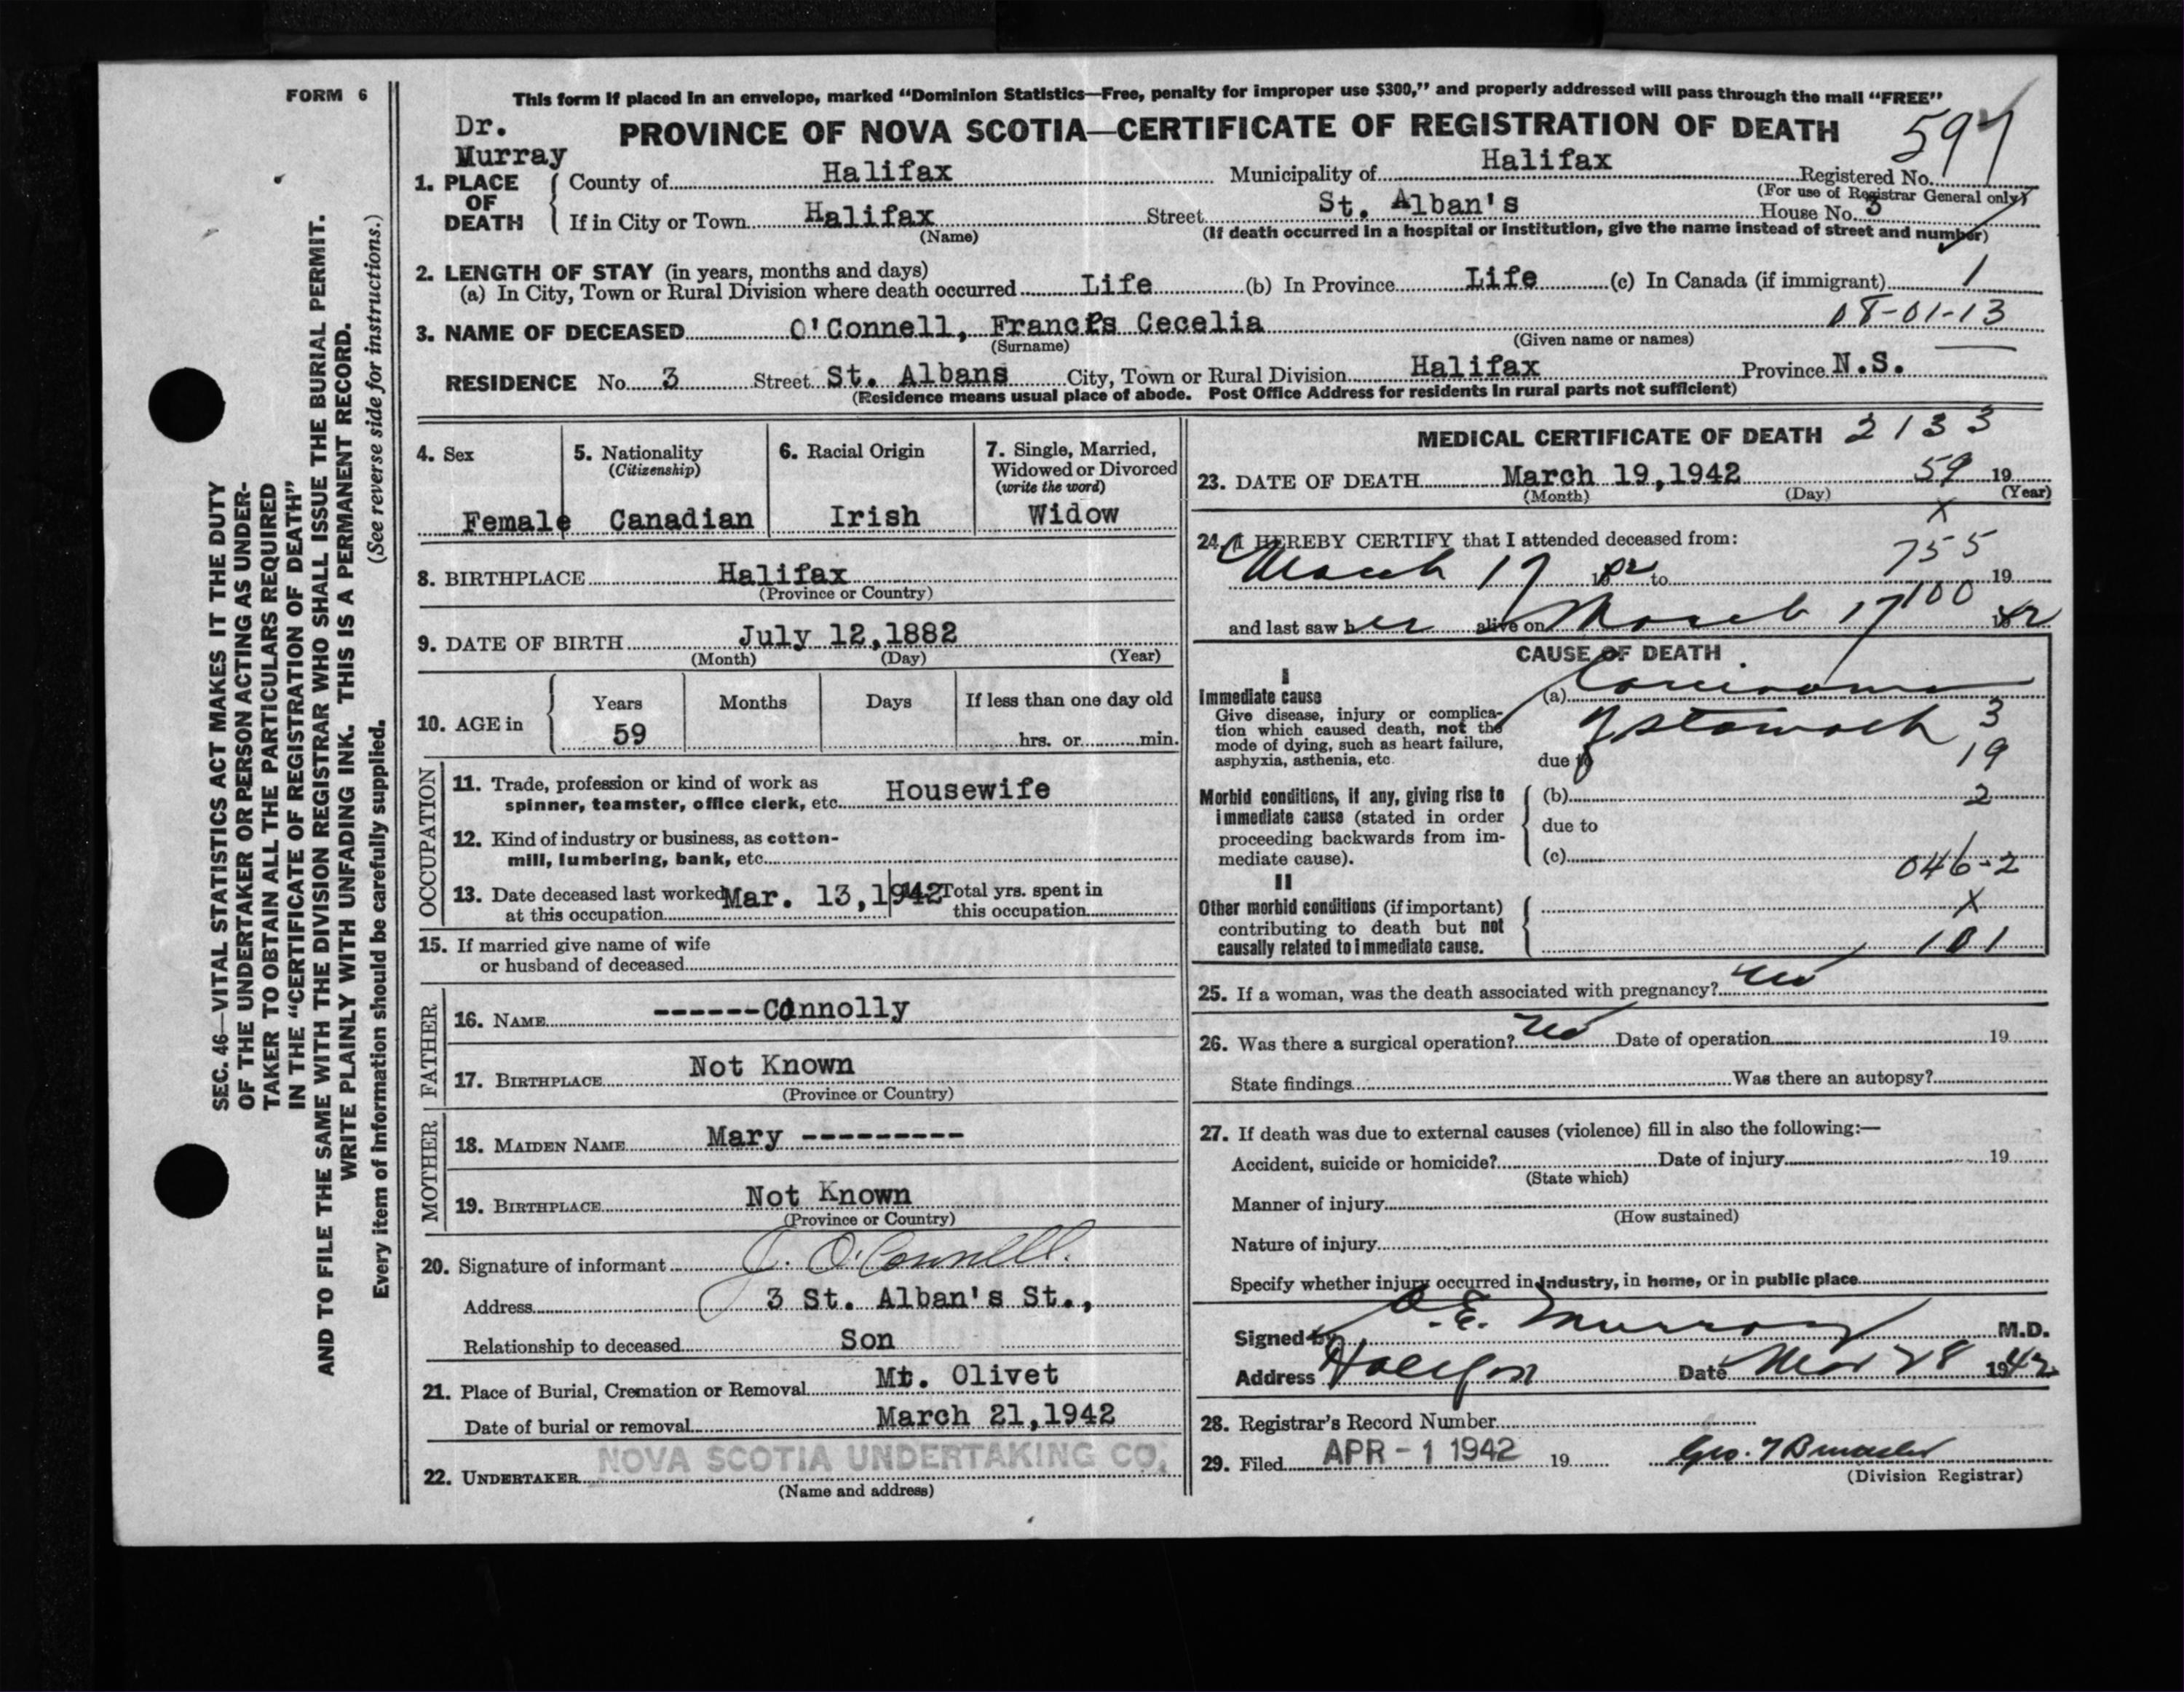 FORM 6
This form if placed in an envelope, marked "Dominion Statistics—Free, penalty for improper use $300," and properly addressed will pass through the mail "FREE"
Dr. Murray
PROVINCE OF NOVA SCOTIA—CERTIFICATE OF REGISTRATION OF DEATH
1. PLACE OF DEATH
County of Halifax Municipality of Halifax Registered No. 597
(For use of Registrar General only)
If in City or Town Halifax Street St. Alban's House No. 3
(Name) (If death occurred in a hospital or institution, give the name instead of street and number)
2. LENGTH OF STAY (in years, months and days)
(a) In City, Town or Rural Division where death occurred Life (b) In Province Life (c) In Canada (if immigrant) 1
08-01-13
3. NAME OF DECEASED O'Connell, Frances Cecelia
(Surname) (Given name or names)
RESIDENCE No. 3 Street St. Albans City, Town or Rural Division Halifax Province N.S.
(Residence means usual place of abode. Post Office Address for residents in rural parts not sufficient)
4. Sex Female
5. Nationality (Citizenship) Canadian
6. Racial Origin Irish
7. Single, Married, Widowed or Divorced (write the word) Widow
8. BIRTHPLACE Halifax
(Province or Country)
9. DATE OF BIRTH July 12,1882
(Month) (Day) (Year)
10. AGE in Years Months Days If less than one day old
59 hrs. or min.
OCCUPATION
11. Trade, profession or kind of work as
spinner, teamster, office clerk, etc. Housewife
12. Kind of industry or business, as cotton-
mill, lumbering, bank, etc.
13. Date deceased last worked at this occupation Mar. 13,1942
Total yrs. spent in this occupation
15. If married give name of wife
or husband of deceased
FATHER
16. NAME ------Connolly
17. BIRTHPLACE Not Known
(Province or Country)
MOTHER
18. MAIDEN NAME Mary ---------
19. BIRTHPLACE Not Known
(Province or Country)
20. Signature of informant J. O'Connell.
Address 3 St. Alban's St.,
Relationship to deceased Son
21. Place of Burial, Cremation or Removal Mt. Olivet
Date of burial or removal March 21,1942
22. UNDERTAKER NOVA SCOTIA UNDERTAKING CO.
(Name and address)
MEDICAL CERTIFICATE OF DEATH 2133
23. DATE OF DEATH March 19,1942 59 19
(Month) (Day) (Year)
X
24. I HEREBY CERTIFY that I attended deceased from:
755
March 17 to 19
100
and last saw her alive on March 17 1942
CAUSE OF DEATH
I
Immediate cause
Give disease, injury or complica-
tion which caused death, not the
mode of dying, such as heart failure,
asphyxia, asthenia, etc.
(a) Carcinoma
of stomach 3
due to 19
Morbid conditions, if any, giving rise to
immediate cause (stated in order
proceeding backwards from im-
mediate cause).
(b) 2
due to
(c) 046-2
II
Other morbid conditions (if important)
contributing to death but not
causally related to immediate cause.
X
101
25. If a woman, was the death associated with pregnancy? no
26. Was there a surgical operation? no Date of operation 19
State findings Was there an autopsy?
27. If death was due to external causes (violence) fill in also the following:—
Accident, suicide or homicide? Date of injury 19
(State which)
Manner of injury
(How sustained)
Nature of injury
Specify whether injury occurred in industry, in home, or in public place
Signed by E. Murray M.D.
Address Halifax Date Mar 28 1942
28. Registrar's Record Number
29. Filed APR - 1 1942 19 Geo.
(Division Registrar)
SEC. 46—VITAL STATISTICS ACT MAKES IT THE DUTY
OF THE UNDERTAKER OR PERSON ACTING AS UNDER-
TAKER TO OBTAIN ALL THE PARTICULARS REQUIRED
IN THE "CERTIFICATE OF REGISTRATION OF DEATH"
AND TO FILE THE SAME WITH THE DIVISION REGISTRAR WHO SHALL ISSUE THE BURIAL PERMIT.
WRITE PLAINLY WITH UNFADING INK. THIS IS A PERMANENT RECORD.
Every item of information should be carefully supplied. (See reverse side for instructions.)